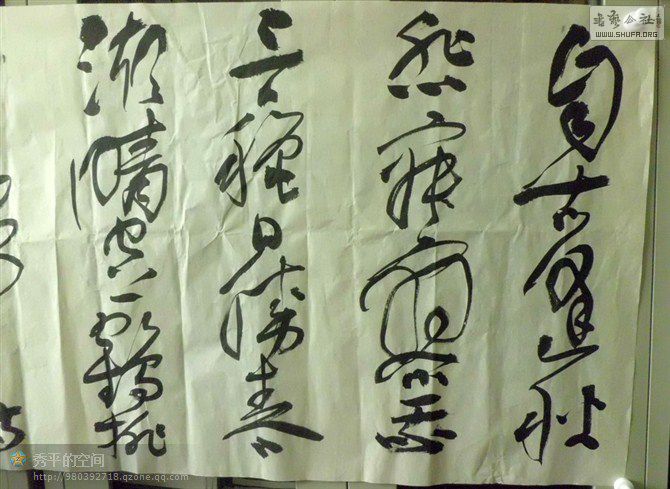 自古逢秋
悲寂寥我
言穐日勝春
潮晴空一鶴排
書藝公社
WWW.SHUFA.ORG
秀平的空间
http://980392718.qzone.qq.com